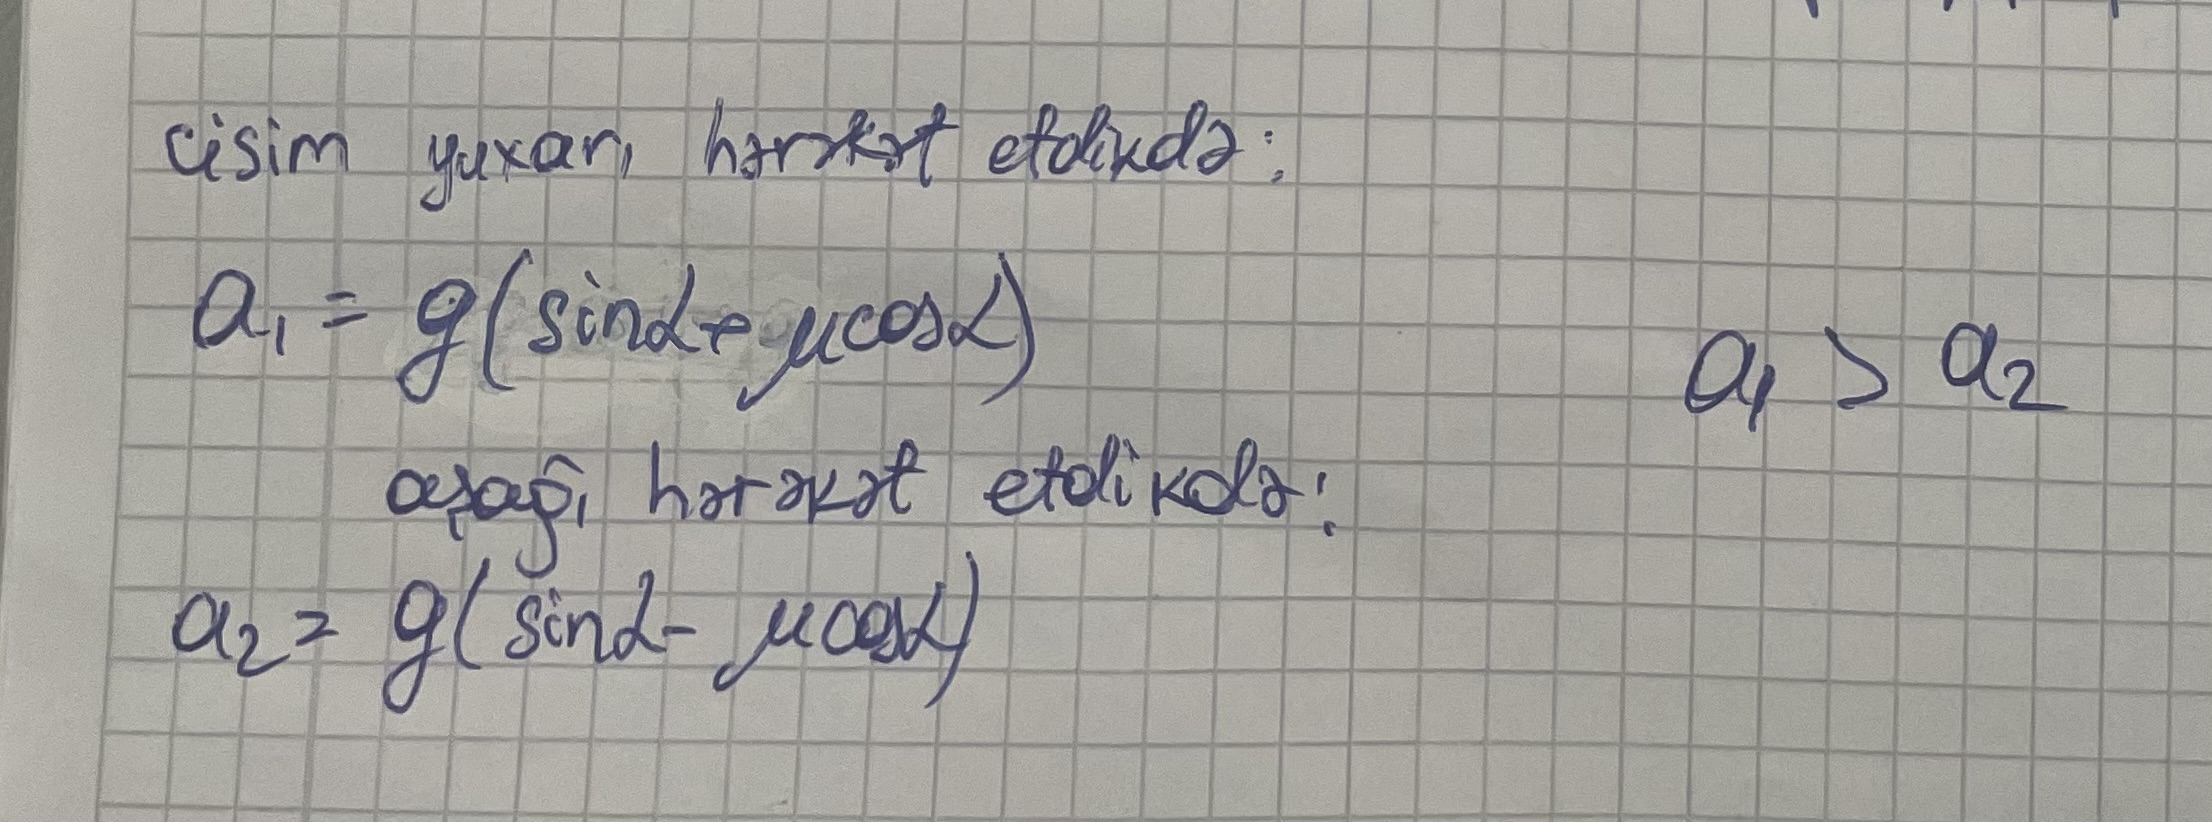 cisim yuxarı hərəkət etdikdə:
a₁ = g(sinα + μcosα)
a₁ > a₂
aşağı hərəkət etdikdə:
a₂ = g(sinα - μcosα)